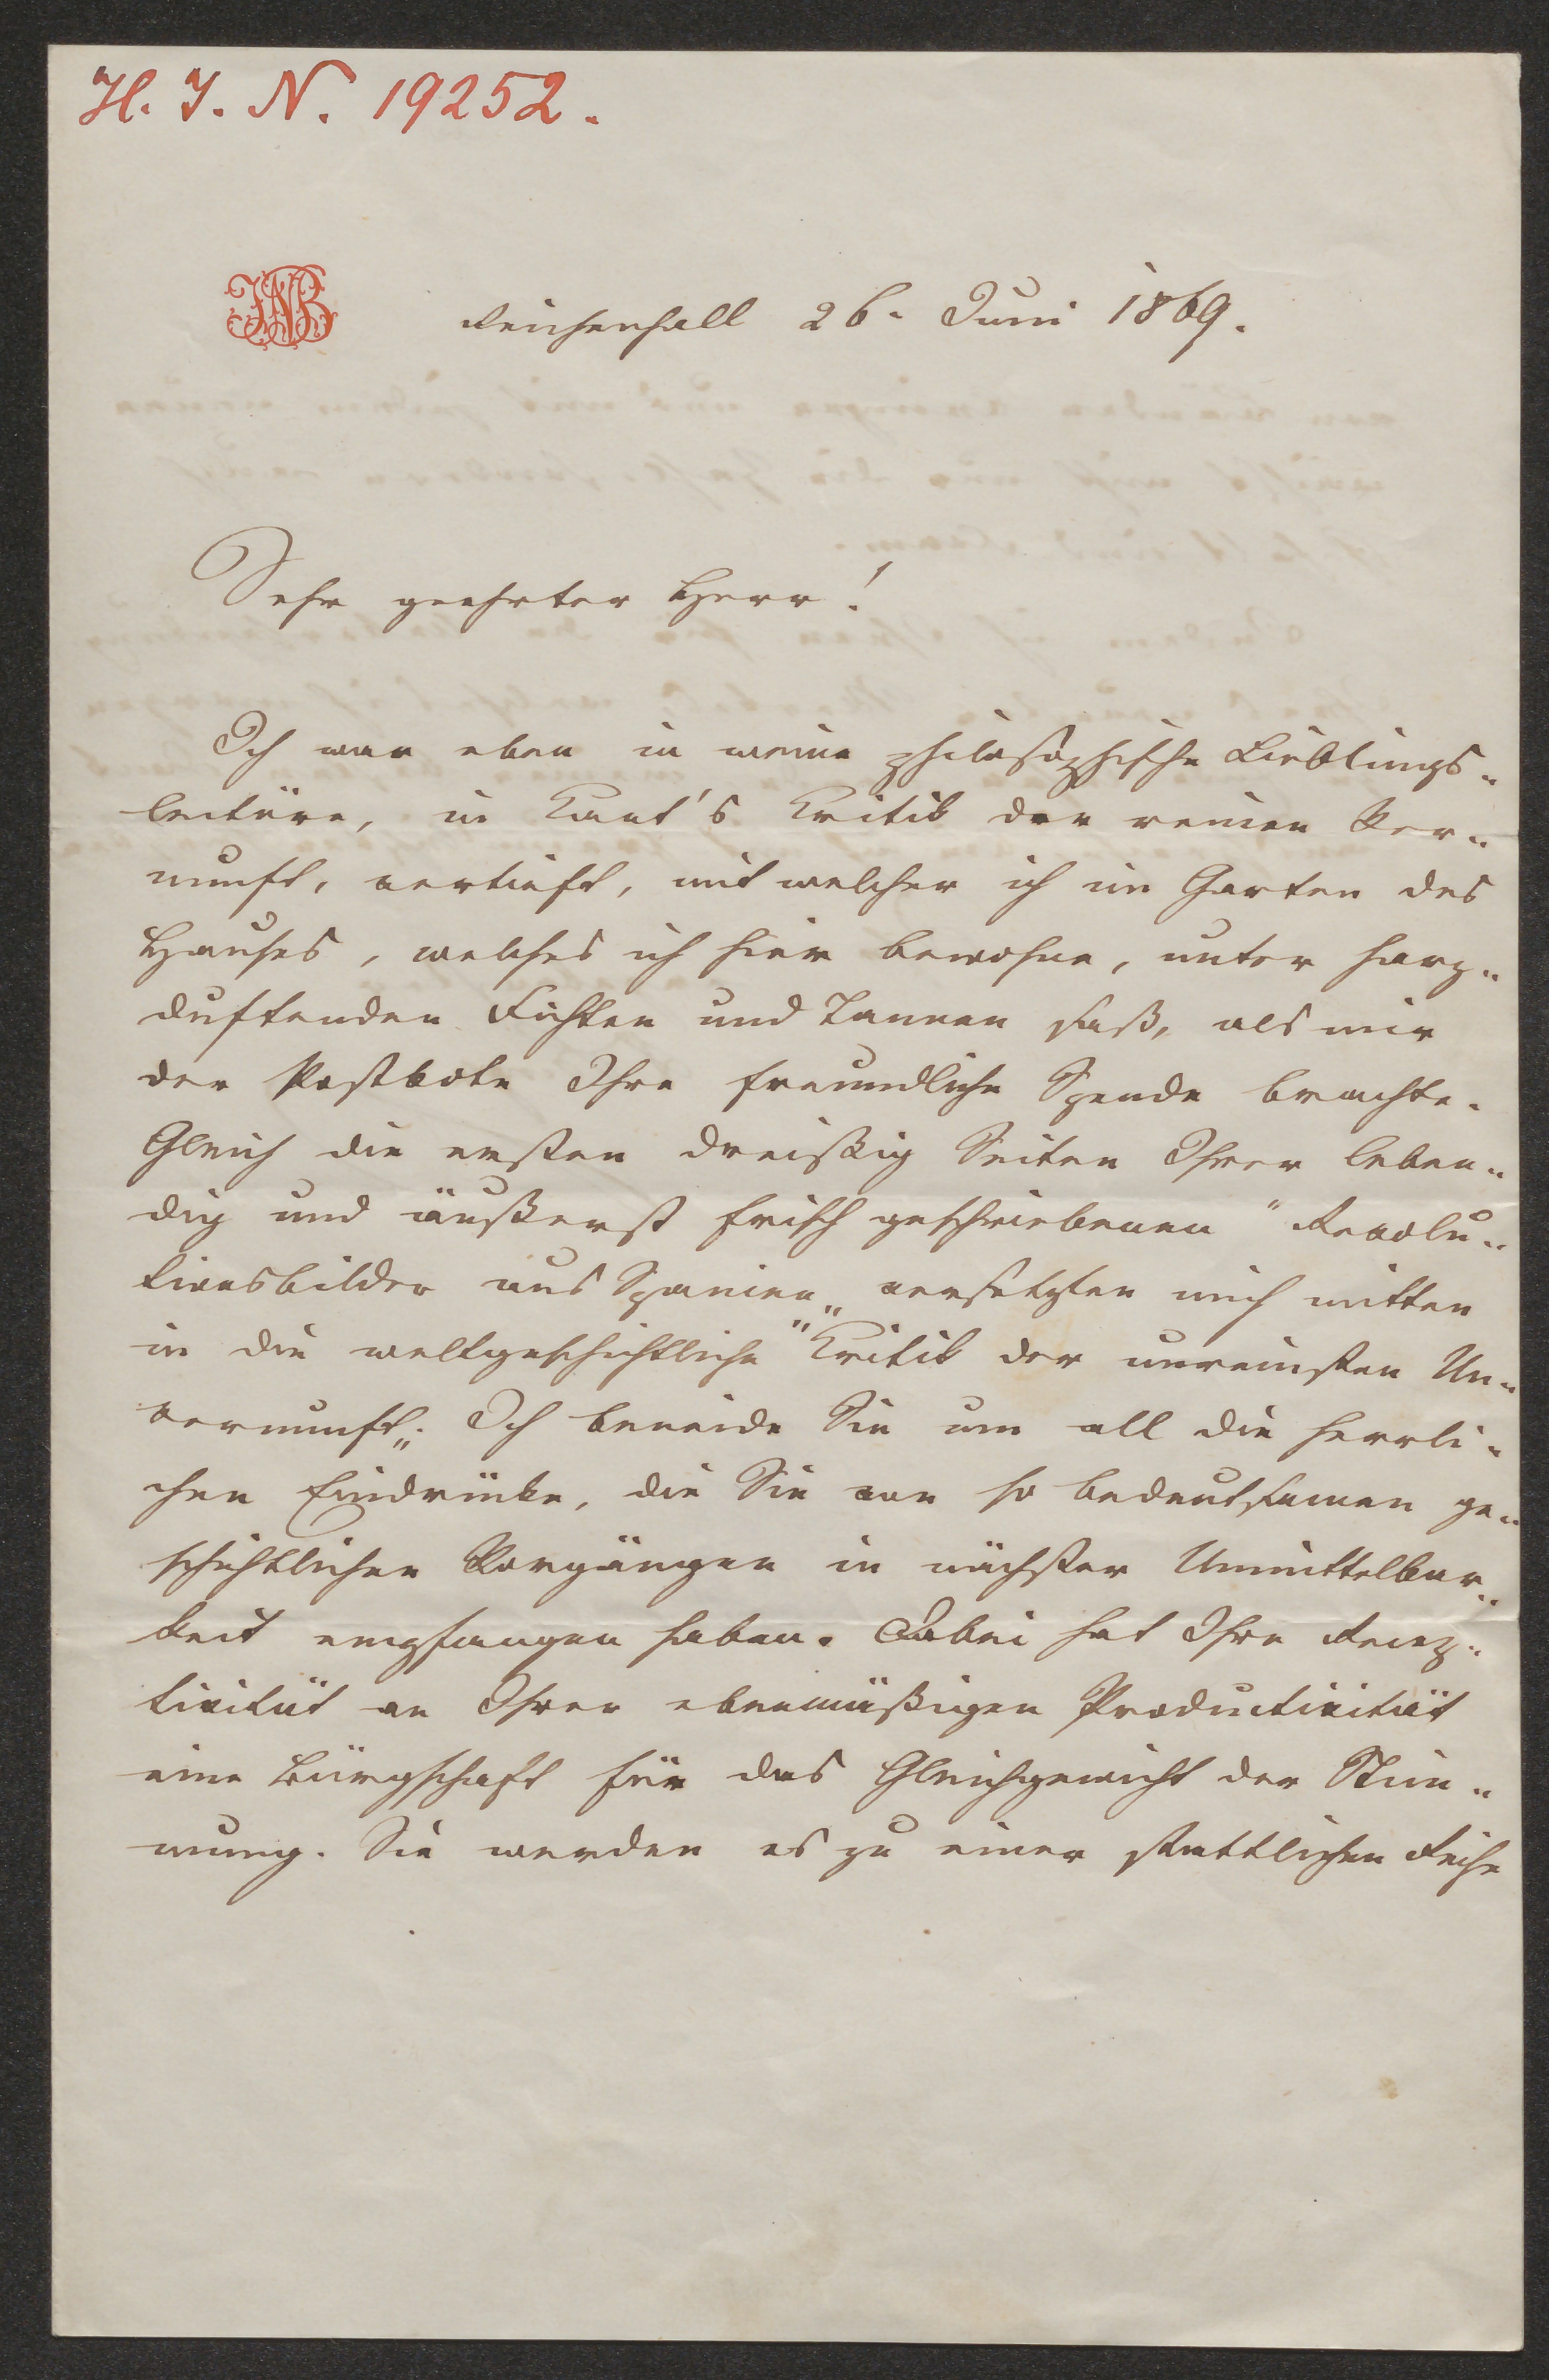 H. I. N. 19252.
JNB
Reichenhall 26. Juni 1869.
Sehr geehrter Herr!
Ich war eben in meine philosophische Lieblings-
lectüre, in Kant's Kritik der reinen Ver-
nunft, vertieft, mit welcher ich im Garten des
Hauses, welches ich hier bewohne, unter harz-
duftenden Fichten und Tannen saß, als mir
der Postbote Ihre freundliche Spende brachte.
Gleich die ersten dreißig Seiten Ihrer leben-
dig und äußerst frisch geschriebenen "Revolu-
tionsbilder aus Spanien" versetzten mich mitten
in die weltgeschichtliche "Kritik der unreinsten Un-
vernunft". Ich beneide Sie um all die herrli-
chen Eindrücke, die Sie von so bedeutsamen ge-
schichtlichen Vorgängen in nächster Unmittelbar-
keit empfangen haben. Dabei hat Ihre Recep-
tivität an Ihrer ebenmäßigen Productivität
eine Bürgschaft für das Gleichgewicht der Stim-
mung. Sie werden es zu einer stattlichen Reihe